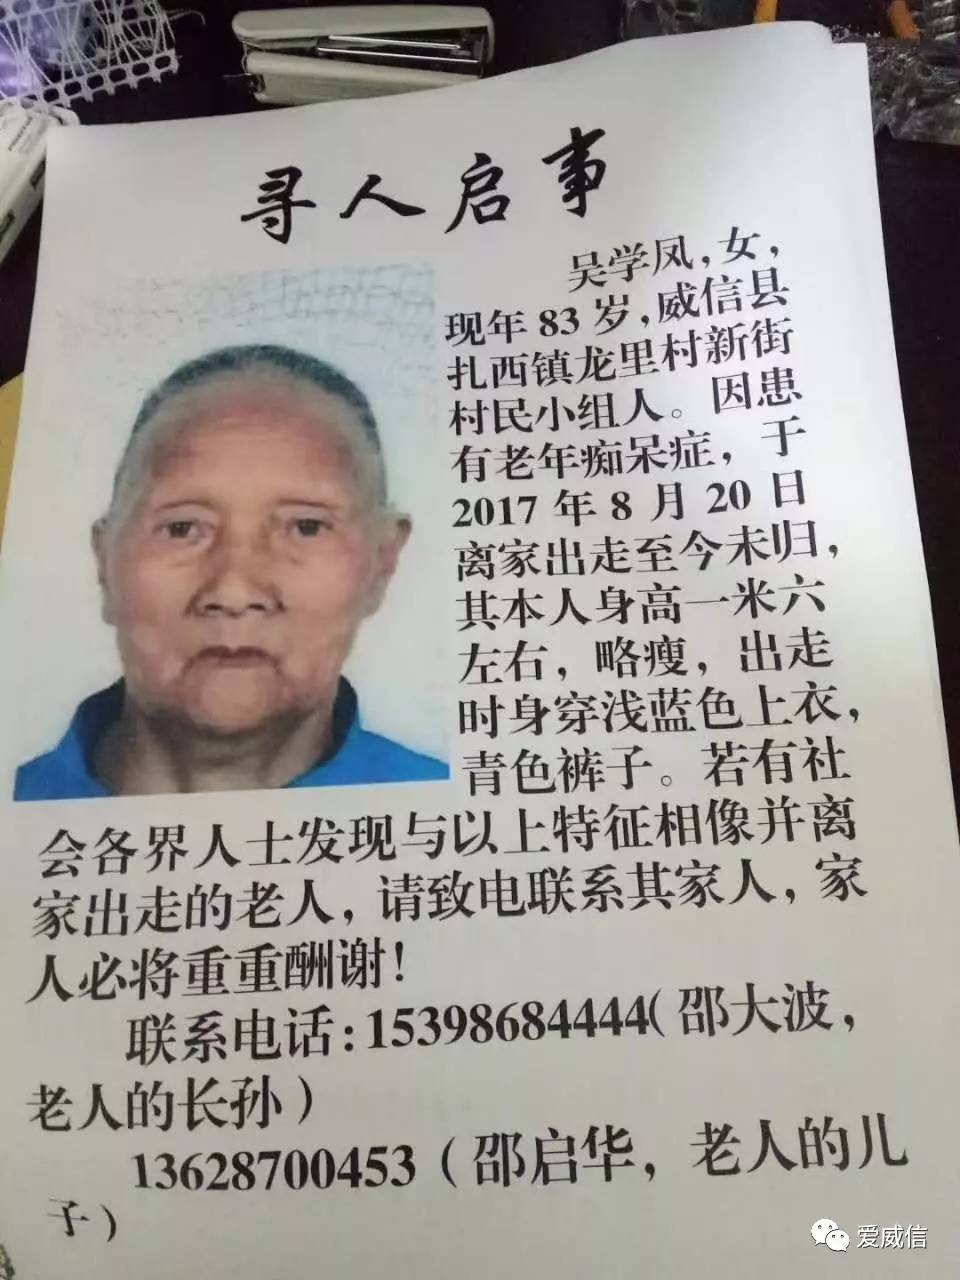 寻人启事
吴学凤,女,
现年 83 岁,威信县
扎西镇龙里村新街
村民小组人。因患
有老年痴呆症，于
2017 年 8 月 20 日
离家出走至今未归，
其本人身高一米六
左右，略瘦，出走
时身穿浅蓝色上衣，
青色裤子。若有社
会各界人士发现与以上特征相像并离
家出走的老人，请致电联系其家人，家
人必将重重酬谢!
联系电话:15398684444(邵大波，
老人的长孙)
13628700453(邵启华，老人的儿
子)
爱威信